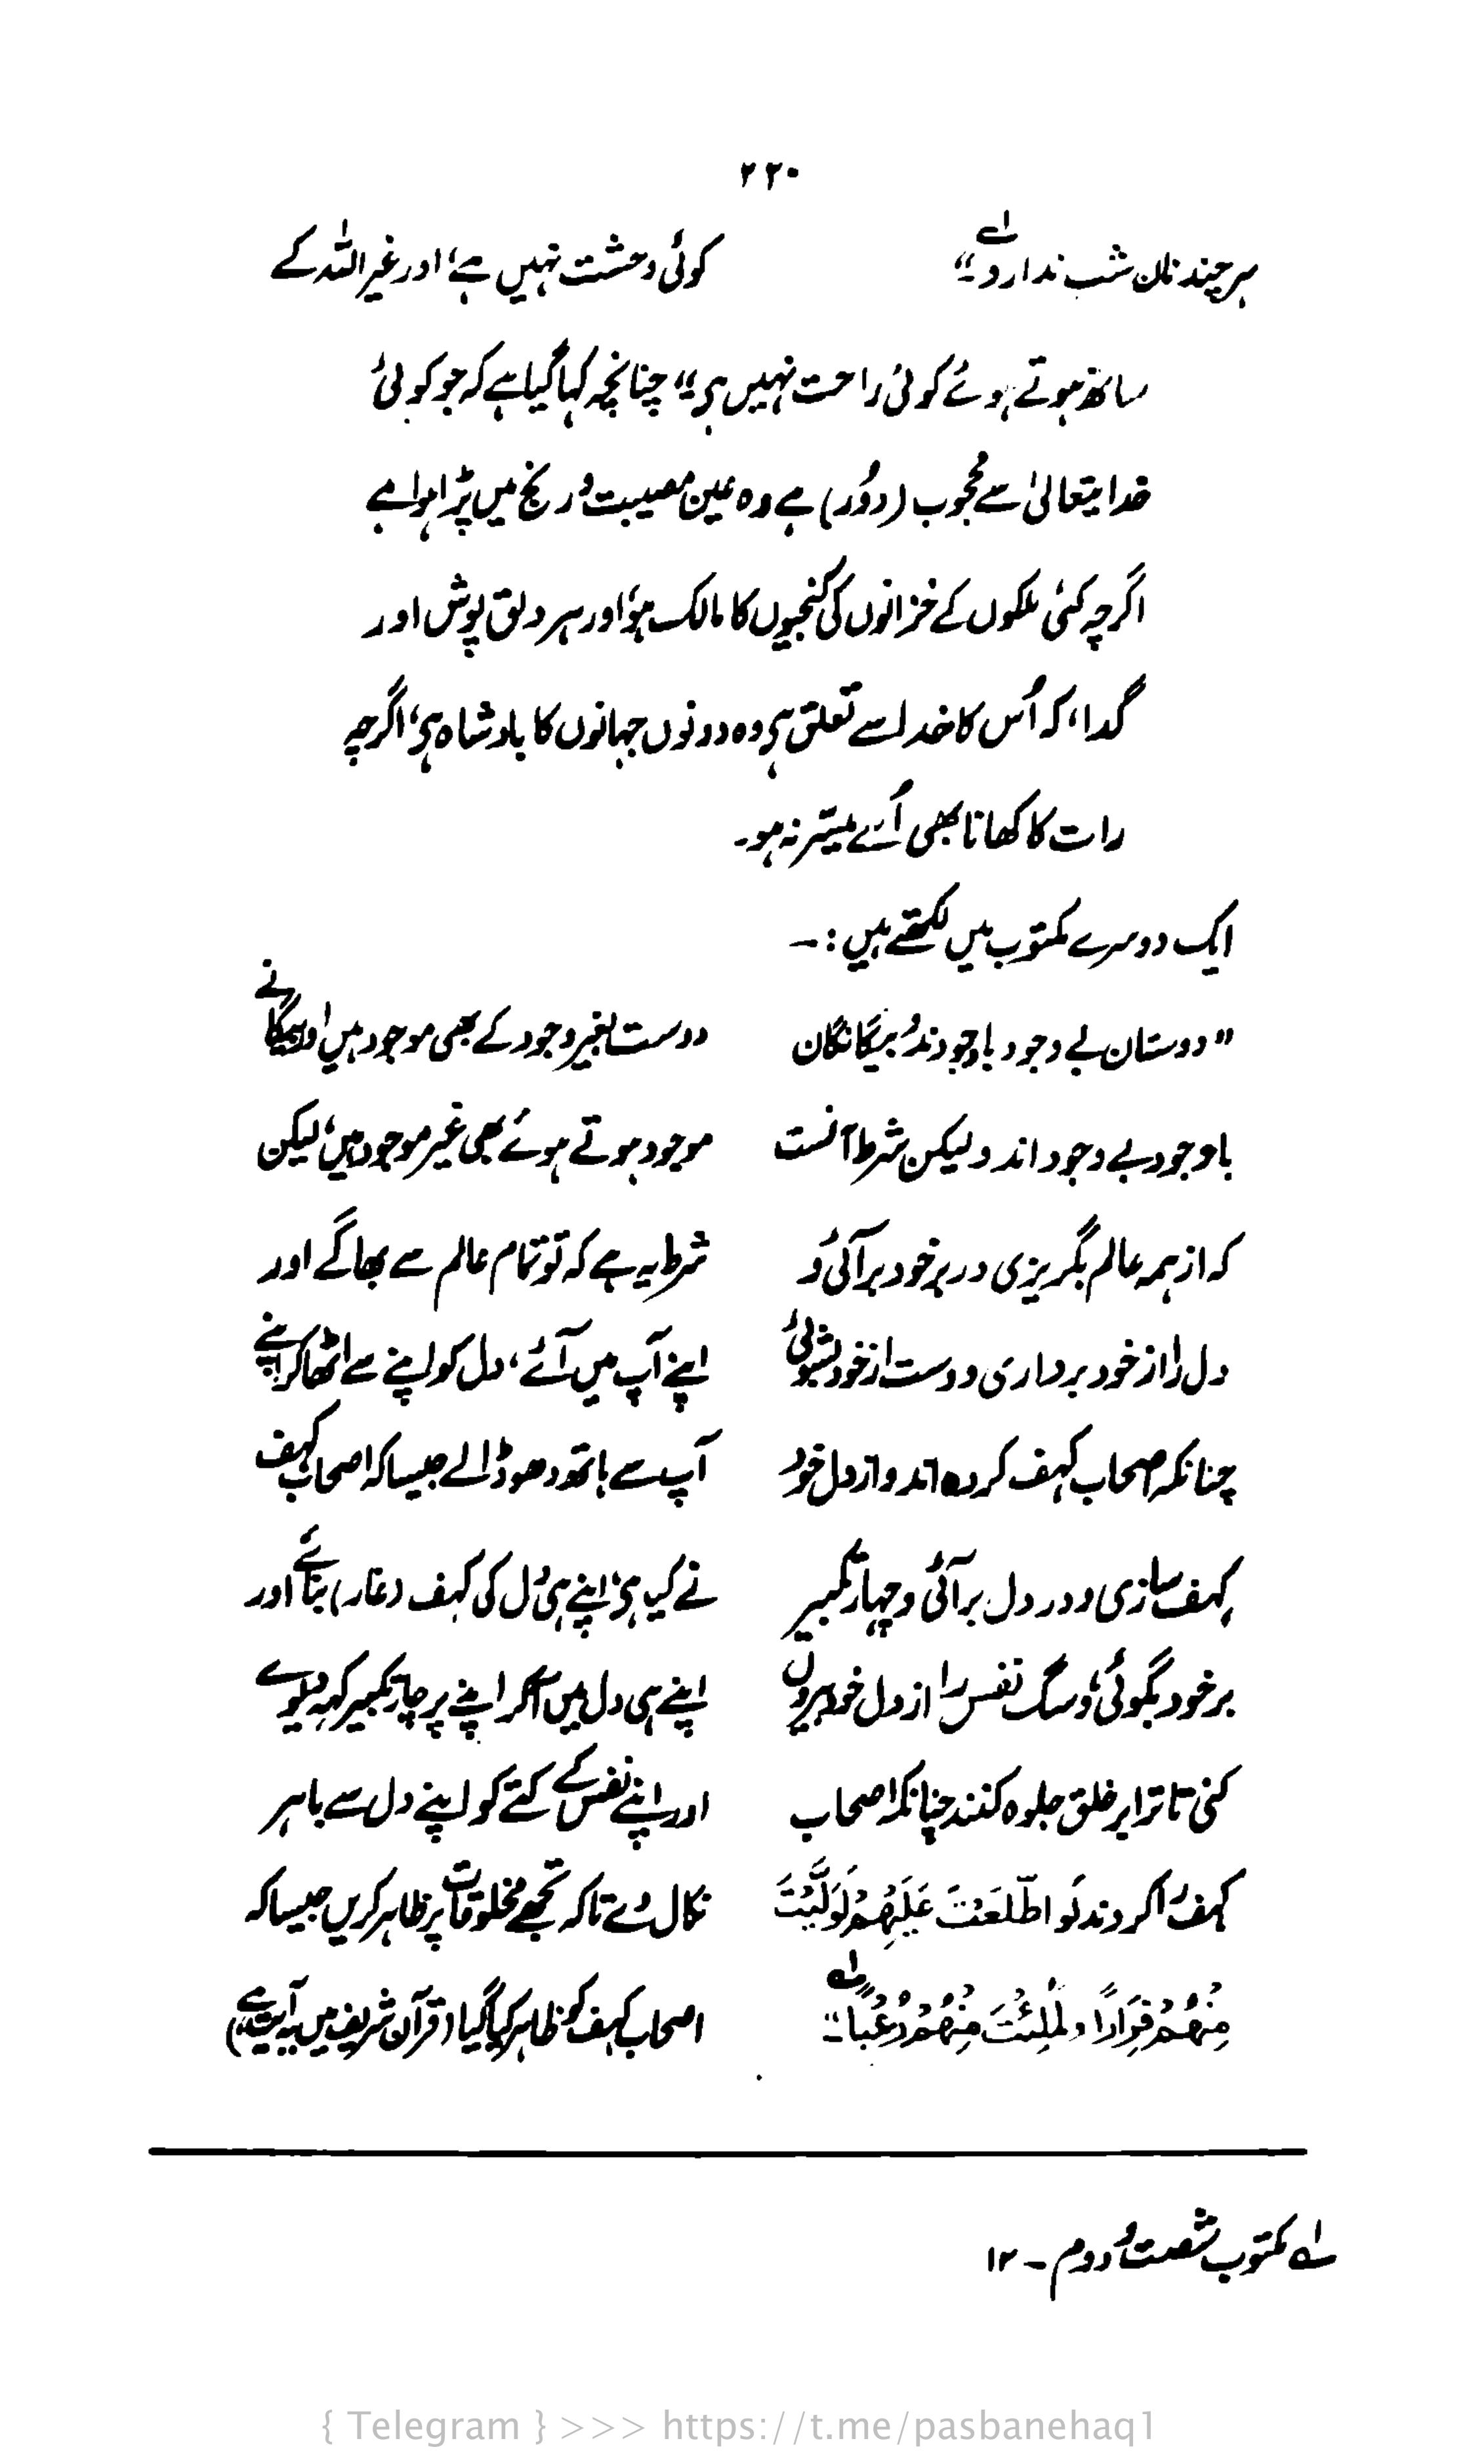 ۲۲۰
ہر چند نان شب ندارد"۱؎
کوئی وحشت نہیں ہے، اور غیر اللہ کے
ساتھ ہوتے ہوئے کوئی راحت نہیں ہی" چنانچہ کہا گیا ہے کہ جو کوئی
خدایتعالیٰ سے محجوب (دُور) ہے وہ عین مصیبت و رنج میں پڑا ہوا ہے
اگرچہ کئی ملکوں کے خزانوں کی کنجیوں کا مالک ہو، اور ہر دلق پوش اور
گدا، کہ اُس کا خدا سے تعلق ہی وہ دونوں جہانوں کا بادشاہ ہی، اگرچہ
رات کا کھانا بھی اُسے میسّر نہ ہو۔
ایک دوسرے مکتوب میں لکھتے ہیں :۔
"دوستان بے وجود باوجودند و بیگانگان
باوجود بے وجود اند ولیکن شرط آنست
کہ از ہمہ عالم بگریزی در بر خود برآئی و
دل را از خود برداری و دست از خود بشوئی
چنانکہ اصحاب کہف کردہ اند و از دل خود
کہف سازی و در دل برآئی و چہار تکبیر
بر خود بگوئی و سگ نفس را از دل خود بیروں
کنی تا ترا بر خلق جلوہ کنند چنانکہ اصحاب
کہف را کردند لَو اطَّلَعْتَ عَلَیْھِمْ لَوَلَّیْتَ
مِنْھُمْ فِرَارًا وَلَمُلِئْتَ مِنْھُمْ رُعْبًا"۱؎
دوست بغیر وجود کے بھی موجود ہیں اور بیگانے
موجود ہوتے ہوئے بھی غیر موجود ہیں، لیکن
شرط یہ ہے کہ تو تمام عالم سے بھاگے اور
اپنے آپ میں آئے، دل کو اپنے سے اٹھا کر اپنے
آپ سے ہاتھ دھو ڈالے جیسا کہ اصحاب کہف
نے کیا ہی، اپنے ہی دل کی کہف (غار) بنائے اور
اپنے ہی دل میں آکر اپنے پر چار تکبیر کہہ دیوے
اور اپنے نفس کے کتے کو اپنے دل سے باہر
نکال دے تاکہ تجھے مخلوقات پر ظاہر کریں جیسا کہ
اصحاب کہف کو ظاہر کیا گیا (قرآن شریف میں یہ آیت ہے)
۱؎ مکتوب شصت و دوم ۔ ۱۲
{ Telegram } >>> https://t.me/pasbanehaq1